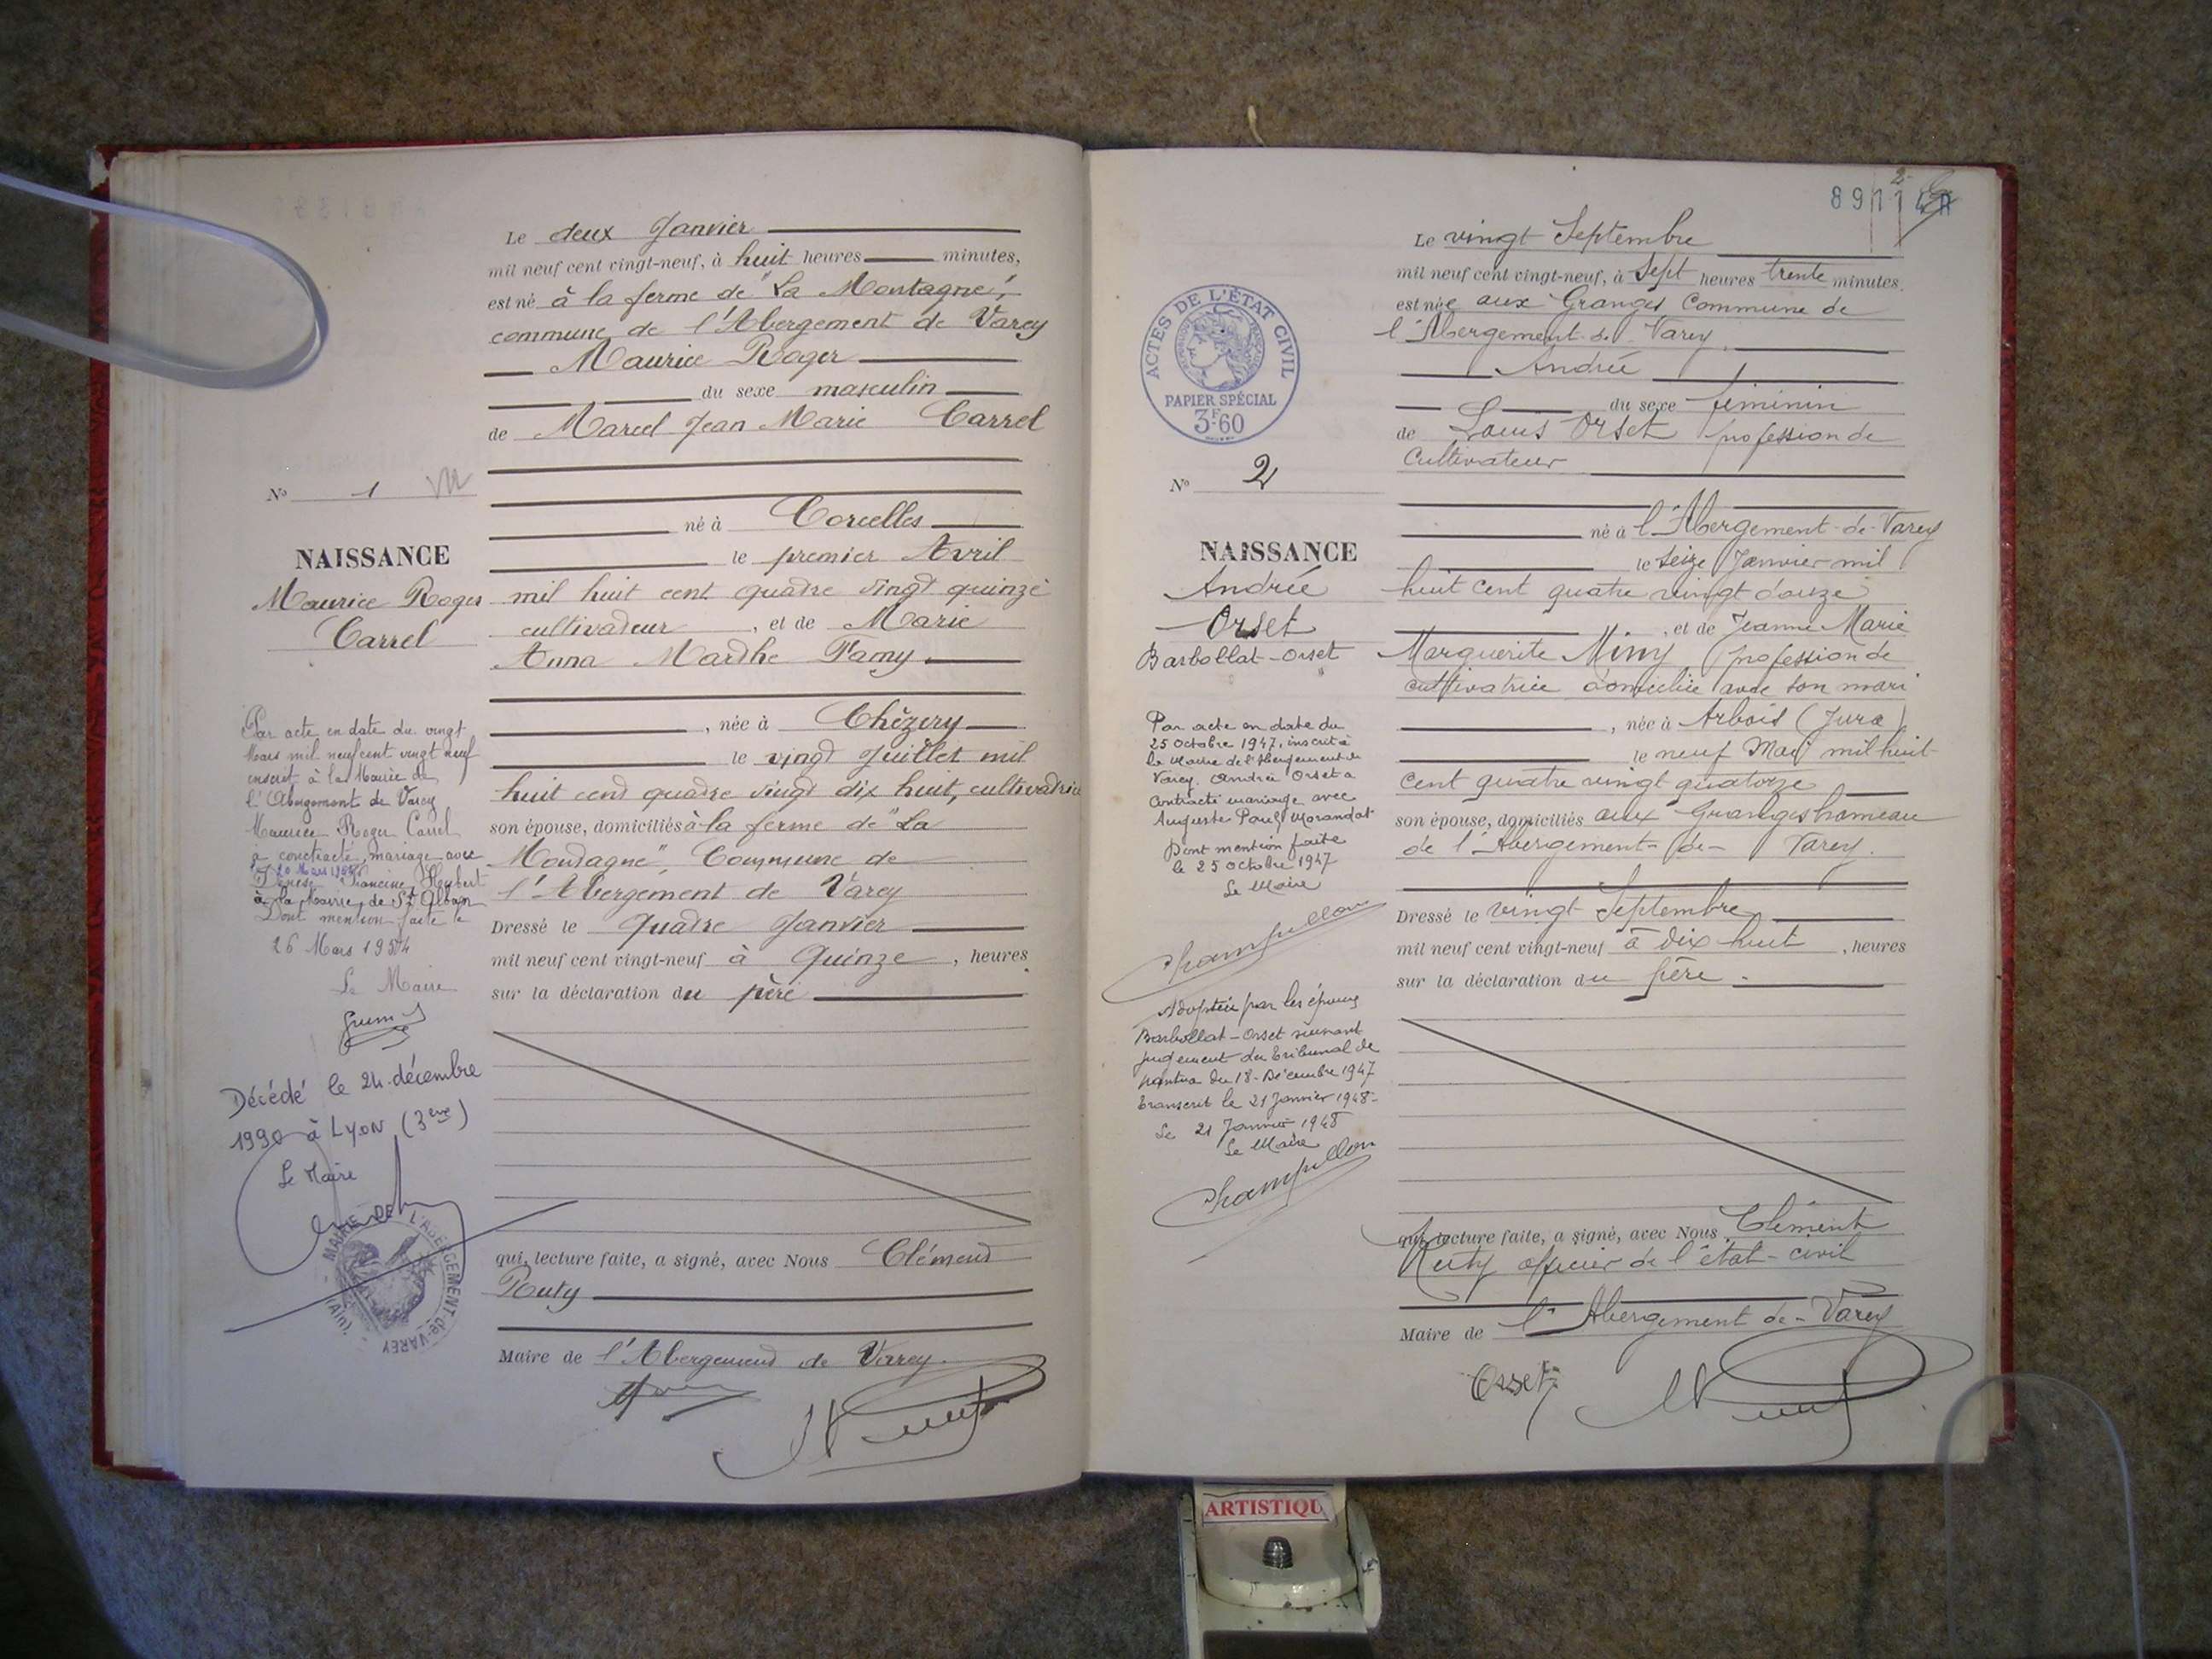 Le deux Janvier
mil neuf cent vingt-neuf, à huit heures minutes,
est né à la ferme de "La Montagne",
commune de l'Abergement de Varey
Maurice Roger
du sexe masculin
de Marcel Jean Marie Carrel
né à Corcelles
le premier Avril
mil huit cent quatre vingt quinze
cultivateur, et de Marie
Anna Marthe Famy
, née à Chézery
le vingt Juillet mil
huit cent quatre vingt dix huit, cultivatrice
son épouse, domiciliés à la ferme de "La
Montagne", Commune de
l'Abergement de Varey
Dressé le Quatre Janvier
mil neuf cent vingt-neuf à Quinze, heures
sur la déclaration du père
qui, lecture faite, a signé, avec Nous Clément
Ruty
Maire de l'Abergement de Varey.
N° 1
NAISSANCE
Maurice Roger
Carrel
Par acte en date du vingt
Mars mil neuf cent vingt neuf
inscrit à la Mairie de
l'Abergement de Varey
Maurice Roger Carrel
a contracté mariage avec
20 Mars
Denise Francine Humbert
à la Mairie de St Alban
Dont mention faite le
26 Mars 1954
Le Maire
Décédé le 24 décembre
1990 à LYON (3ème)
Le Maire
MAIRIE DE L'ABERGEMENT-de-VAREY
(Ain)
89114
Le vingt Septembre
mil neuf cent vingt-neuf, à Sept heures trente minutes,
est née aux Granges Commune de
l'Abergement-de-Varey
Andrée
du sexe féminin
de Louis Orset profession de
Cultivateur
né à l'Abergement-de-Varey
le Seize Janvier mil
huit cent quatre vingt douze
, et de Jeanne Marie
Marguerite Miny profession de
cultivatrice domiciliée avec son mari
, née à Arbois (Jura)
le neuf Mai mil huit
cent quatre vingt quatorze
son épouse, domiciliés aux Granges hameau
de l'Abergement-de-Varey.
Dressé le vingt Septembre
mil neuf cent vingt-neuf à Dix huit, heures
sur la déclaration du père.
qui, lecture faite, a signé, avec Nous Clément
Ruty officier de l'état-civil
Maire de l'Abergement de-Varey
Orset
ACTES DE L'ÉTAT CIVIL
PAPIER SPÉCIAL
3F60
N° 2
NAISSANCE
Andrée
Orset
Barbollat-Orset
Par acte en date du
25 octobre 1947, inscrit à
la Mairie de l'Abergement de
Varey, Andrée Orset a
Contracté mariage avec
Auguste Paul Morandat
Dont mention faite
le 25 octobre 1947
Le Maire
Champollon
Adoptée par les époux
Barbollat-Orset suivant
jugement du Tribunal de
Nantua du 18-Décembre 1947
Transcrit le 21 Janvier 1948-
Le 21 Janvier 1948
Le Maire
Champollon
ARTISTIQU